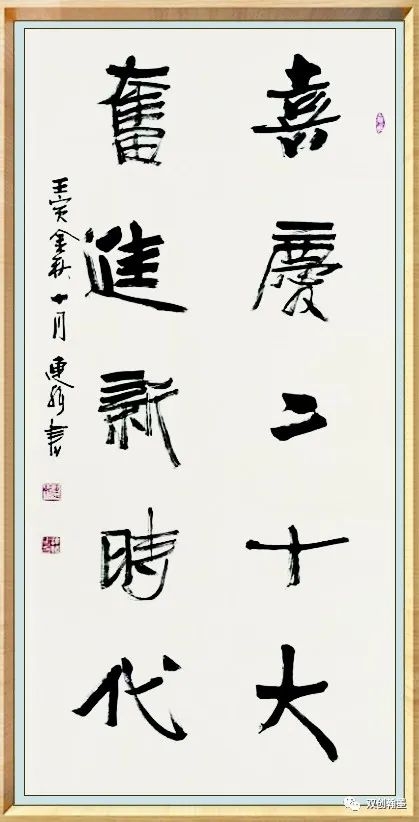 喜慶二十大
奮進新時代
壬寅金秋十月連
書
双创翰墨